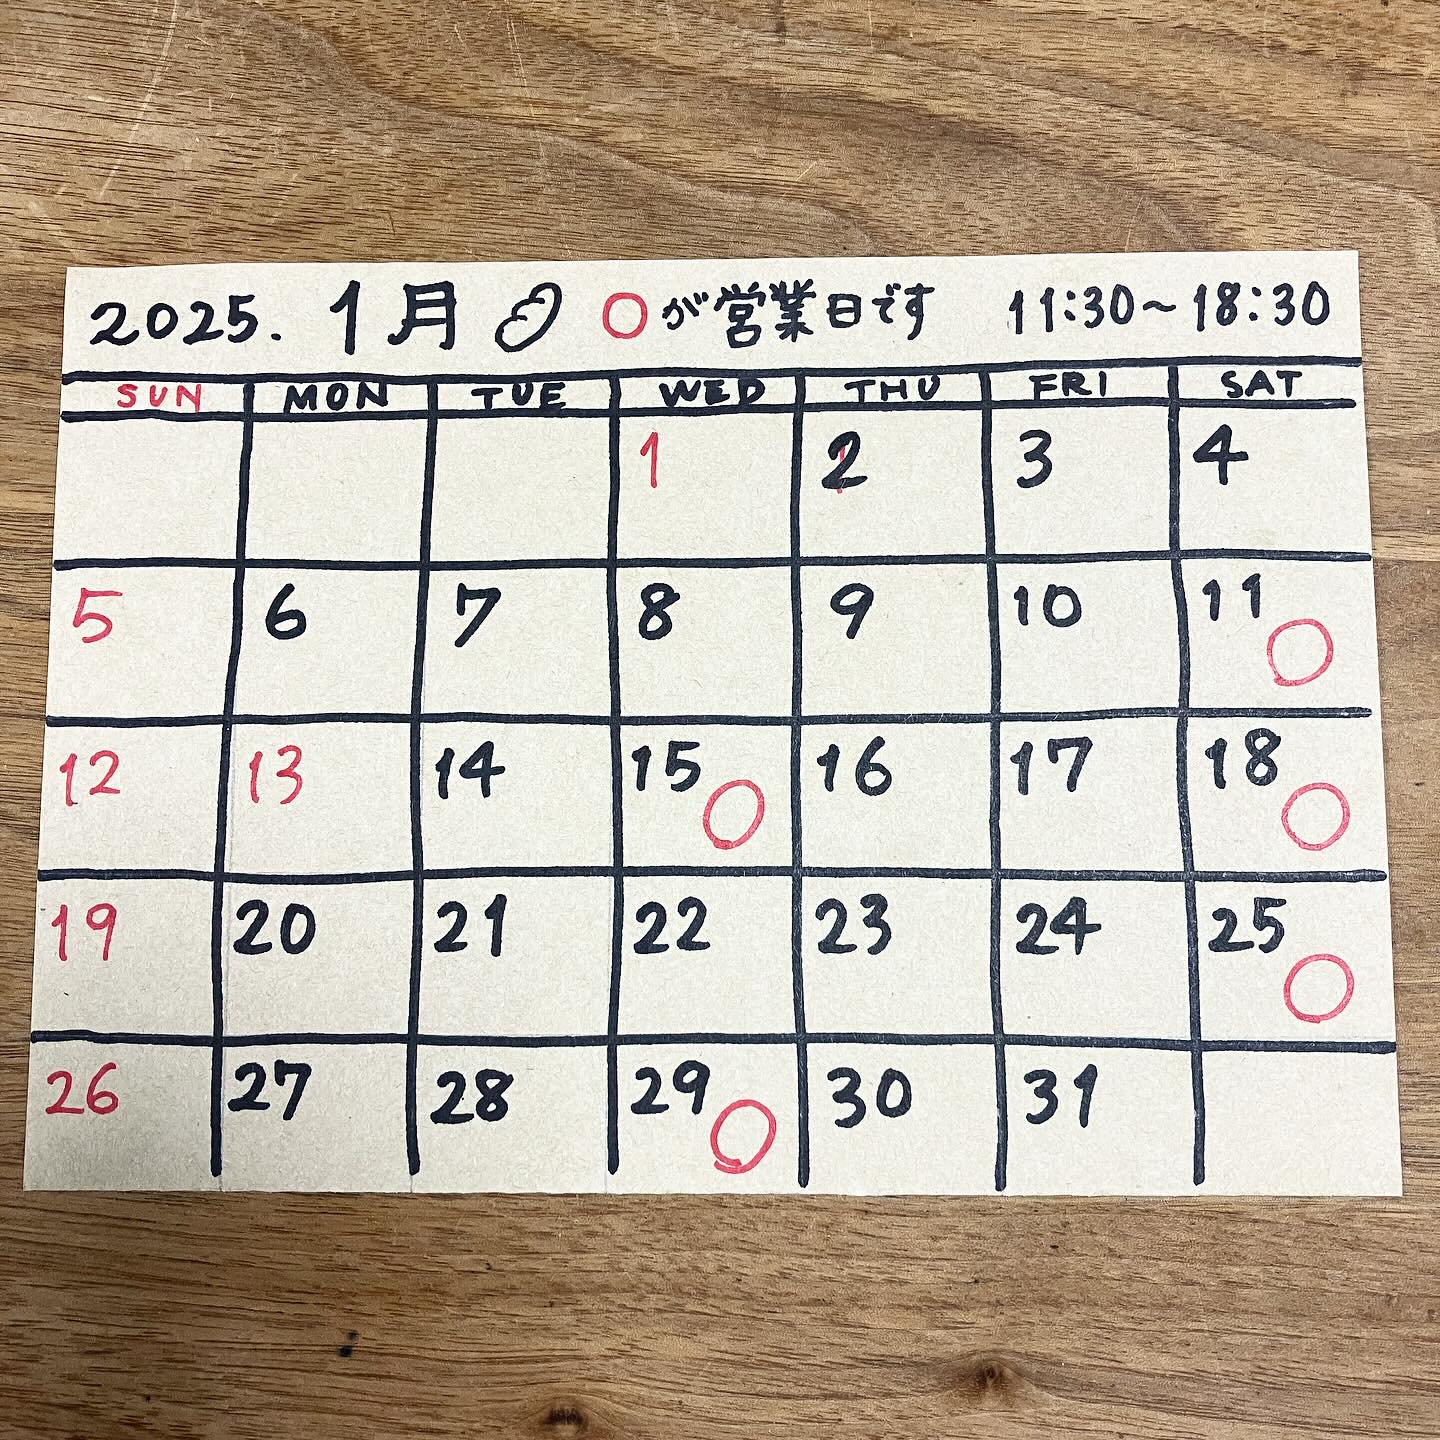 2025. 1月 ○が営業日です 11:30~18:30
SUN MON TUE WED THU FRI SAT
1 2 3 4
5 6 7 8 9 10 11 ○
12 13 14 15 ○ 16 17 18 ○
19 20 21 22 23 24 25 ○
26 27 28 29 ○ 30 31